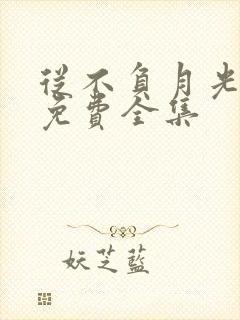 從不負月光
免費全集
妖芝藍